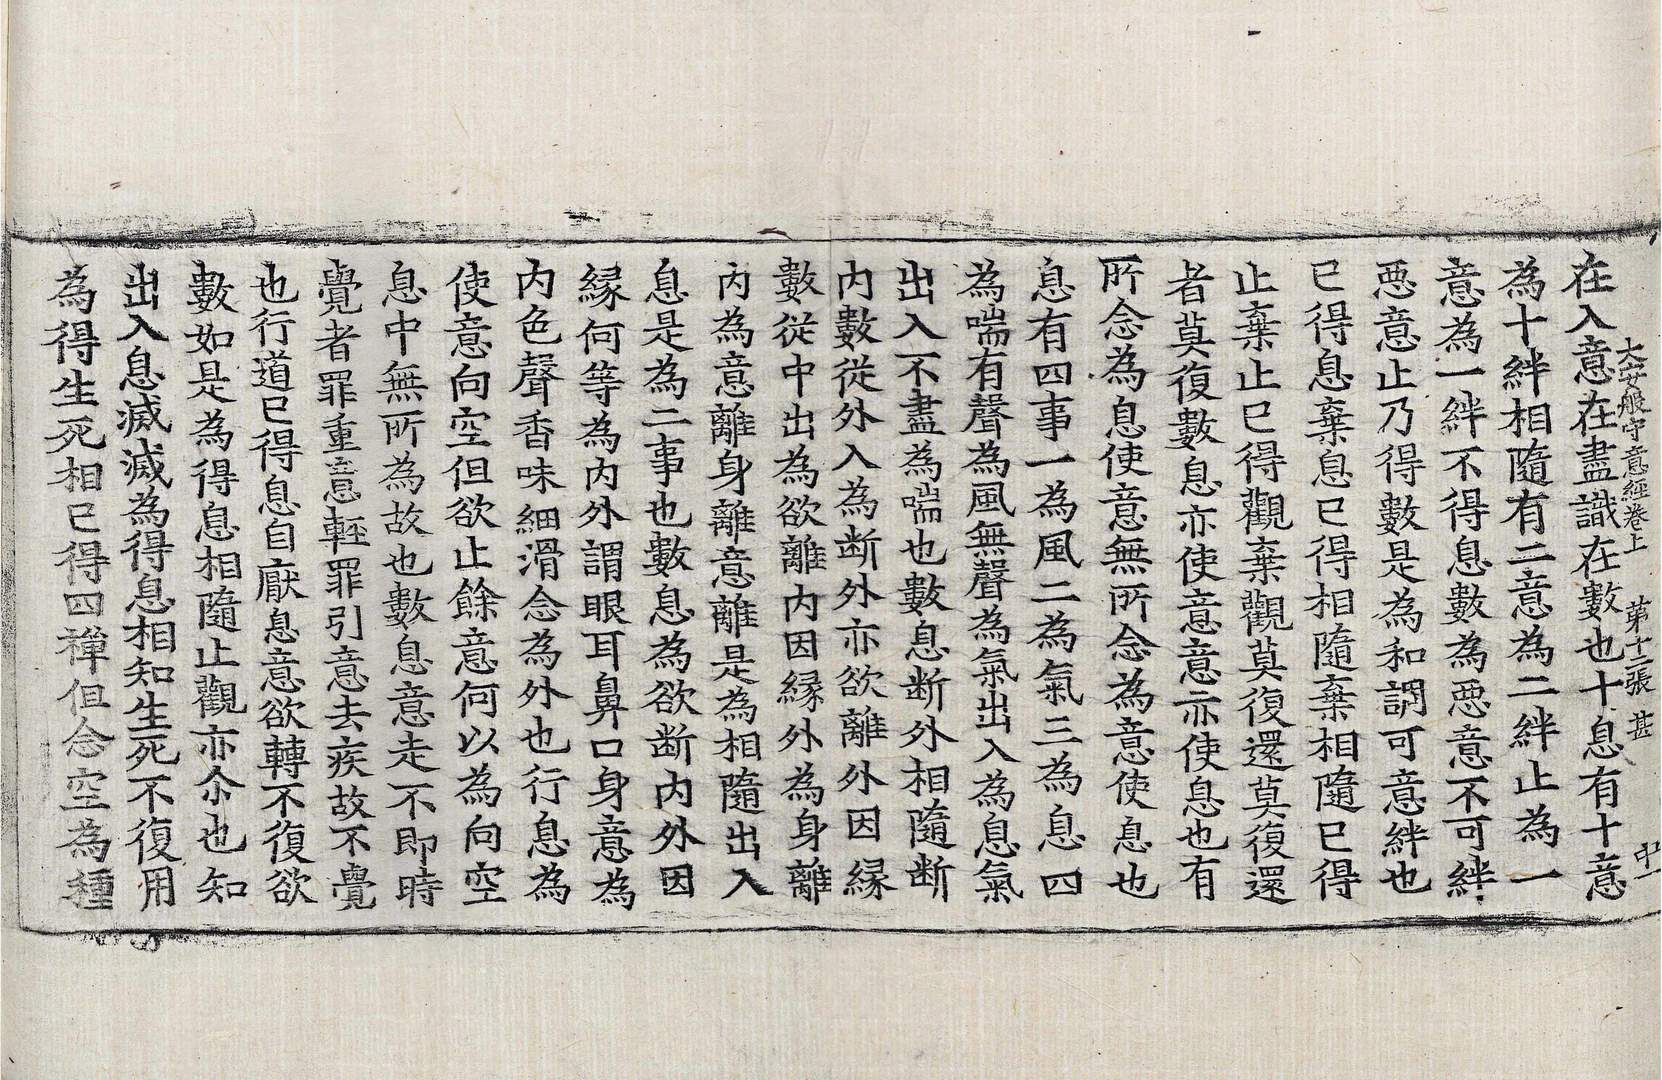 大安般守意經卷上　第十二張　甚
在入意在盡識在數也十息有十意
為十絆相隨有二意為二絆止為一
意為一絆不得息數為惡意不可絆
惡意止乃得數是為和調可意絆也
已得息棄息已得相隨棄相隨已得
止棄止已得觀棄觀莫復還莫復還
者莫復數息亦使意意亦使息也有
所念為息使意無所念為意使息也
息有四事一為風二為氣三為息四
為喘有聲為風無聲為氣出入為息氣
出入不盡為喘也數息断外相隨断
內數從外入為断外亦欲離外因緣
數從中出為欲離內因緣外為身離
內為意離身離意離是為相隨出入
息是為二事也數息為欲断內外因
緣何等為內外謂眼耳鼻口身意為
內色聲香味細滑念為外也行息為
使意向空但欲止餘意何以為向空
息中無所為故也數息意走不即時
覺者罪重意輕罪引意去疾故不覺
也行道已得息自厭息意欲轉不復欲
數如是為得息相隨止觀亦尒也知
出入息滅滅為得息相知生死不復用
為得生死相已得四禪但念空為種